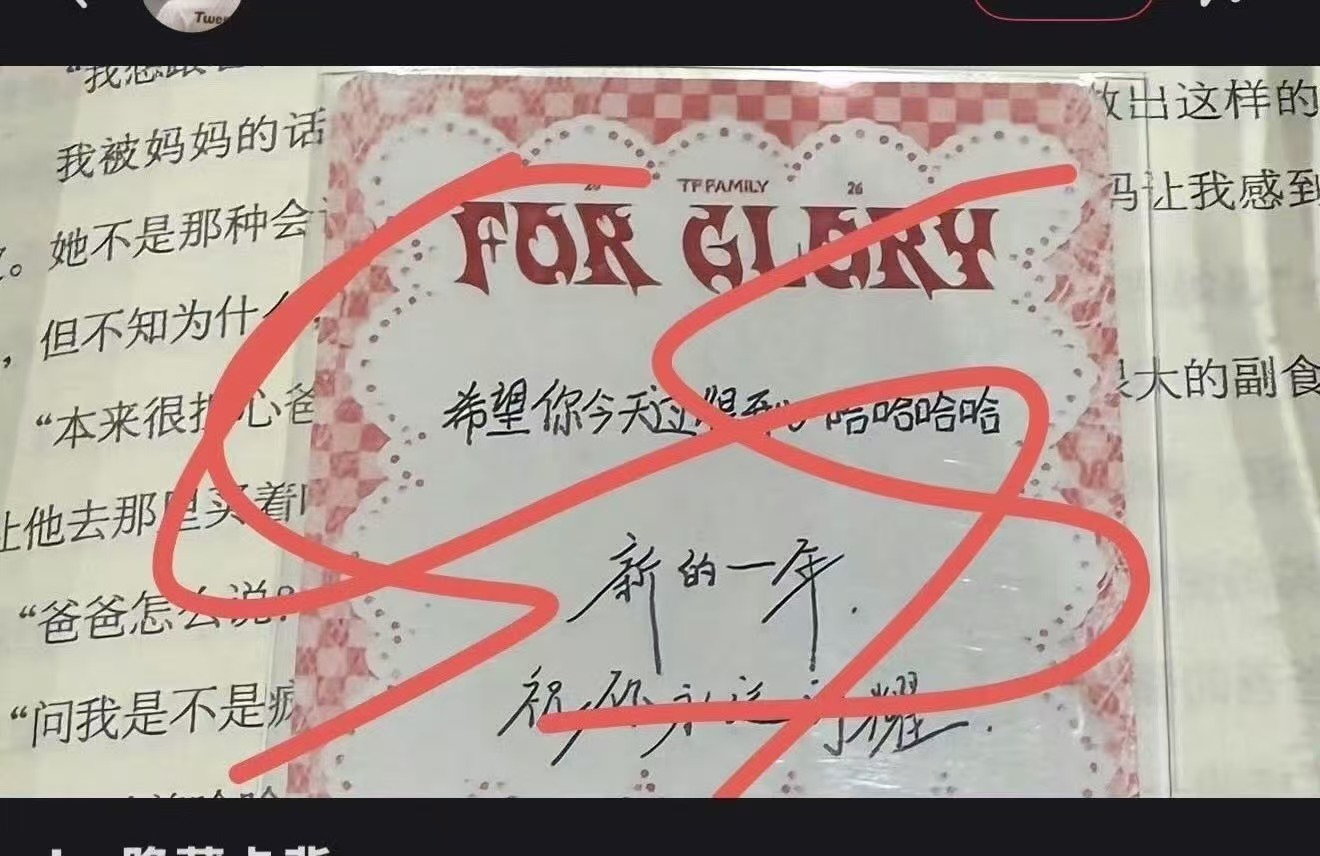 Twen
“我想跟
我被妈妈的话
做出这样的
。她不是那种会
妈让我感到
，但不知为什么
“本来很担心爸
很大的副食
让他去那里买着
“爸爸怎么说?
“问我是不是疯
TF FAMILY
26
FOR GLORY
希望你今天过得 哈哈哈哈
新的一年.
祝你永远闪耀.